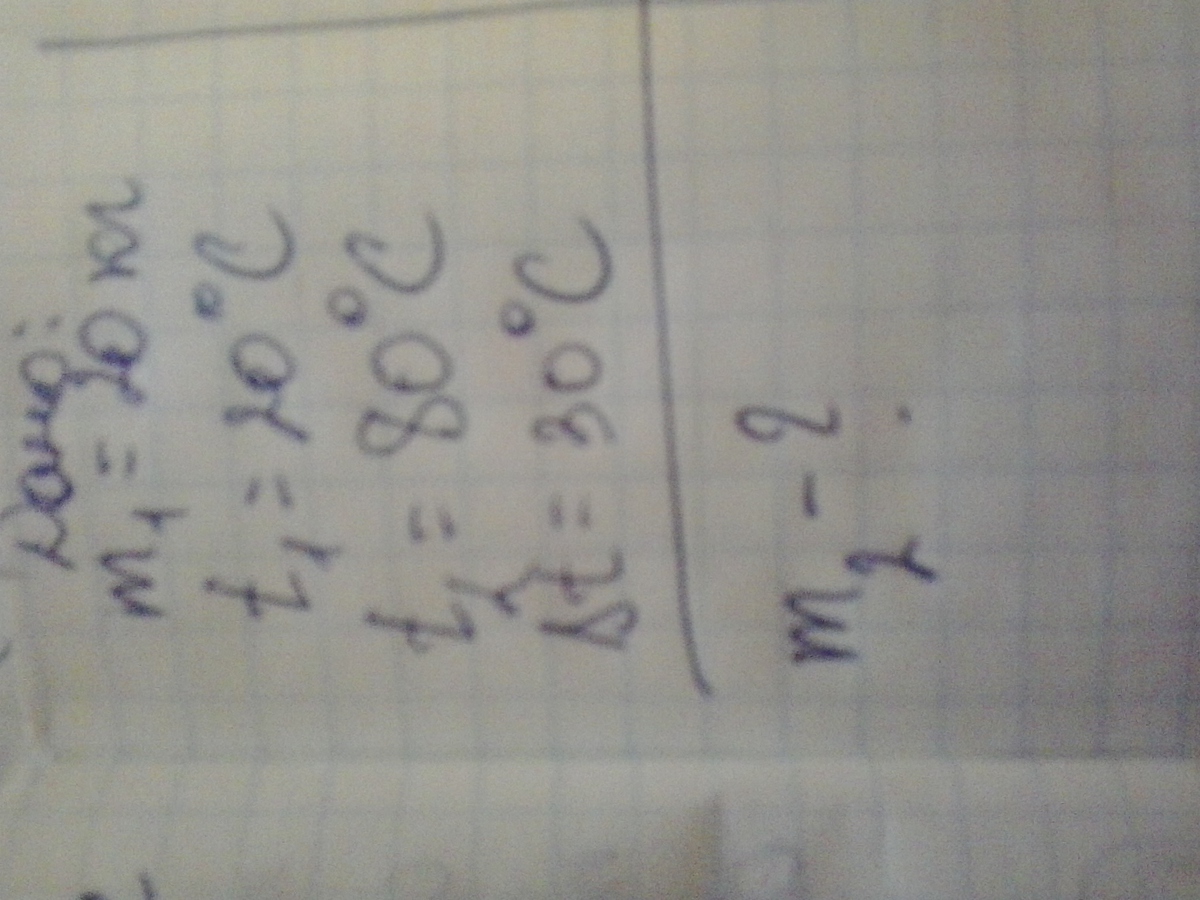 Дано:
m₁ = 20 кг
t₁ = 20°C
t₂ = 80°C
Δt = 30°C
m₂ - ?